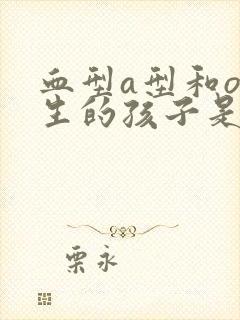 血型a型和o
生的孩子是
栗永